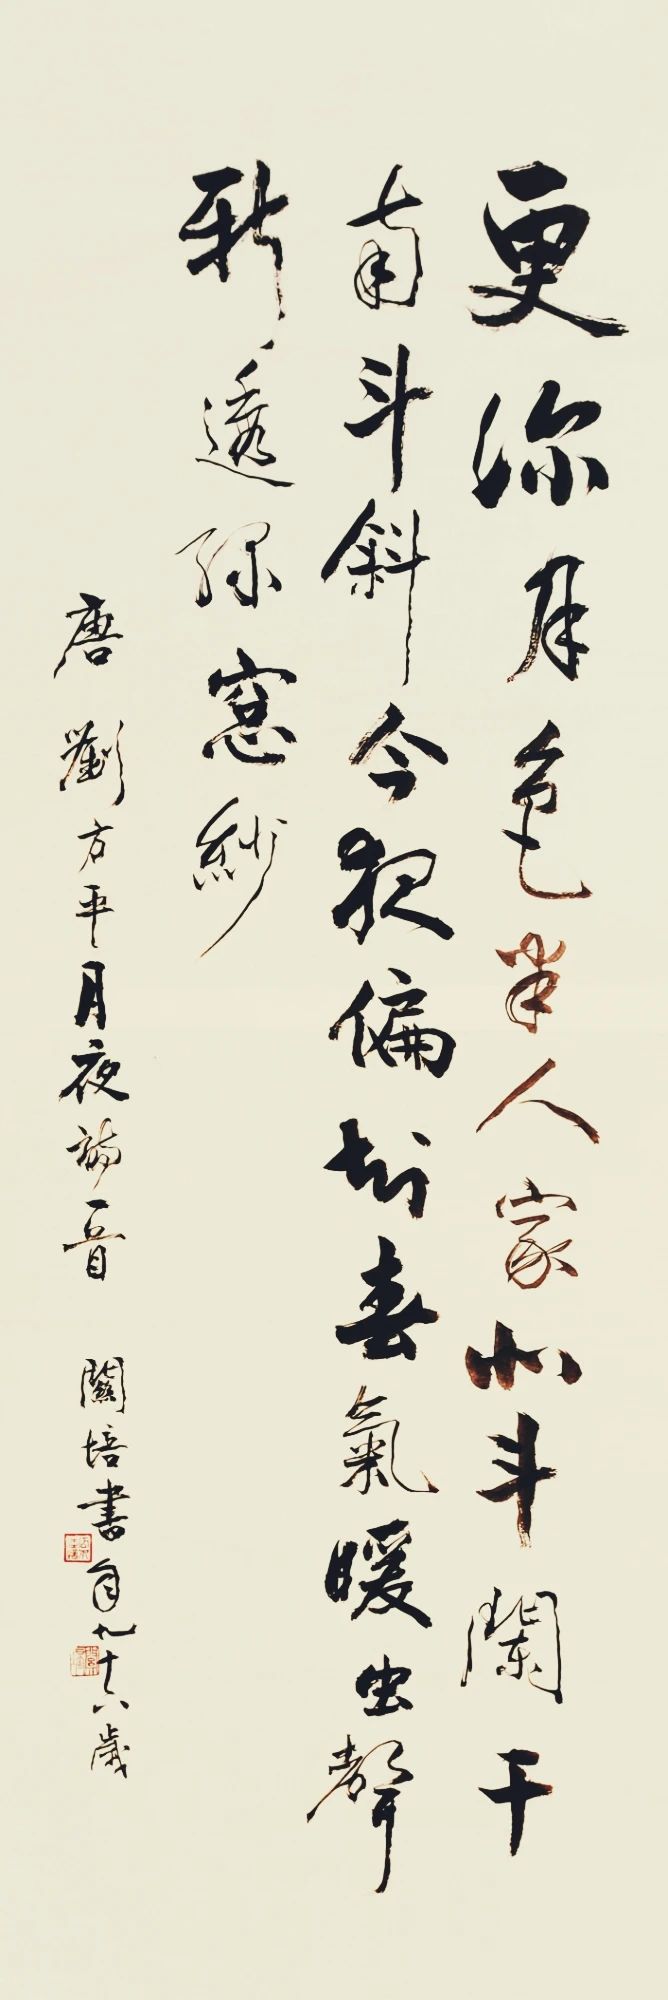 更深月色半人家北斗闌干
南斗斜今夜偏知春氣暖虫聲
新透綠窓紗
唐劉方平月夜詩一首 闕培書 年九十六歲